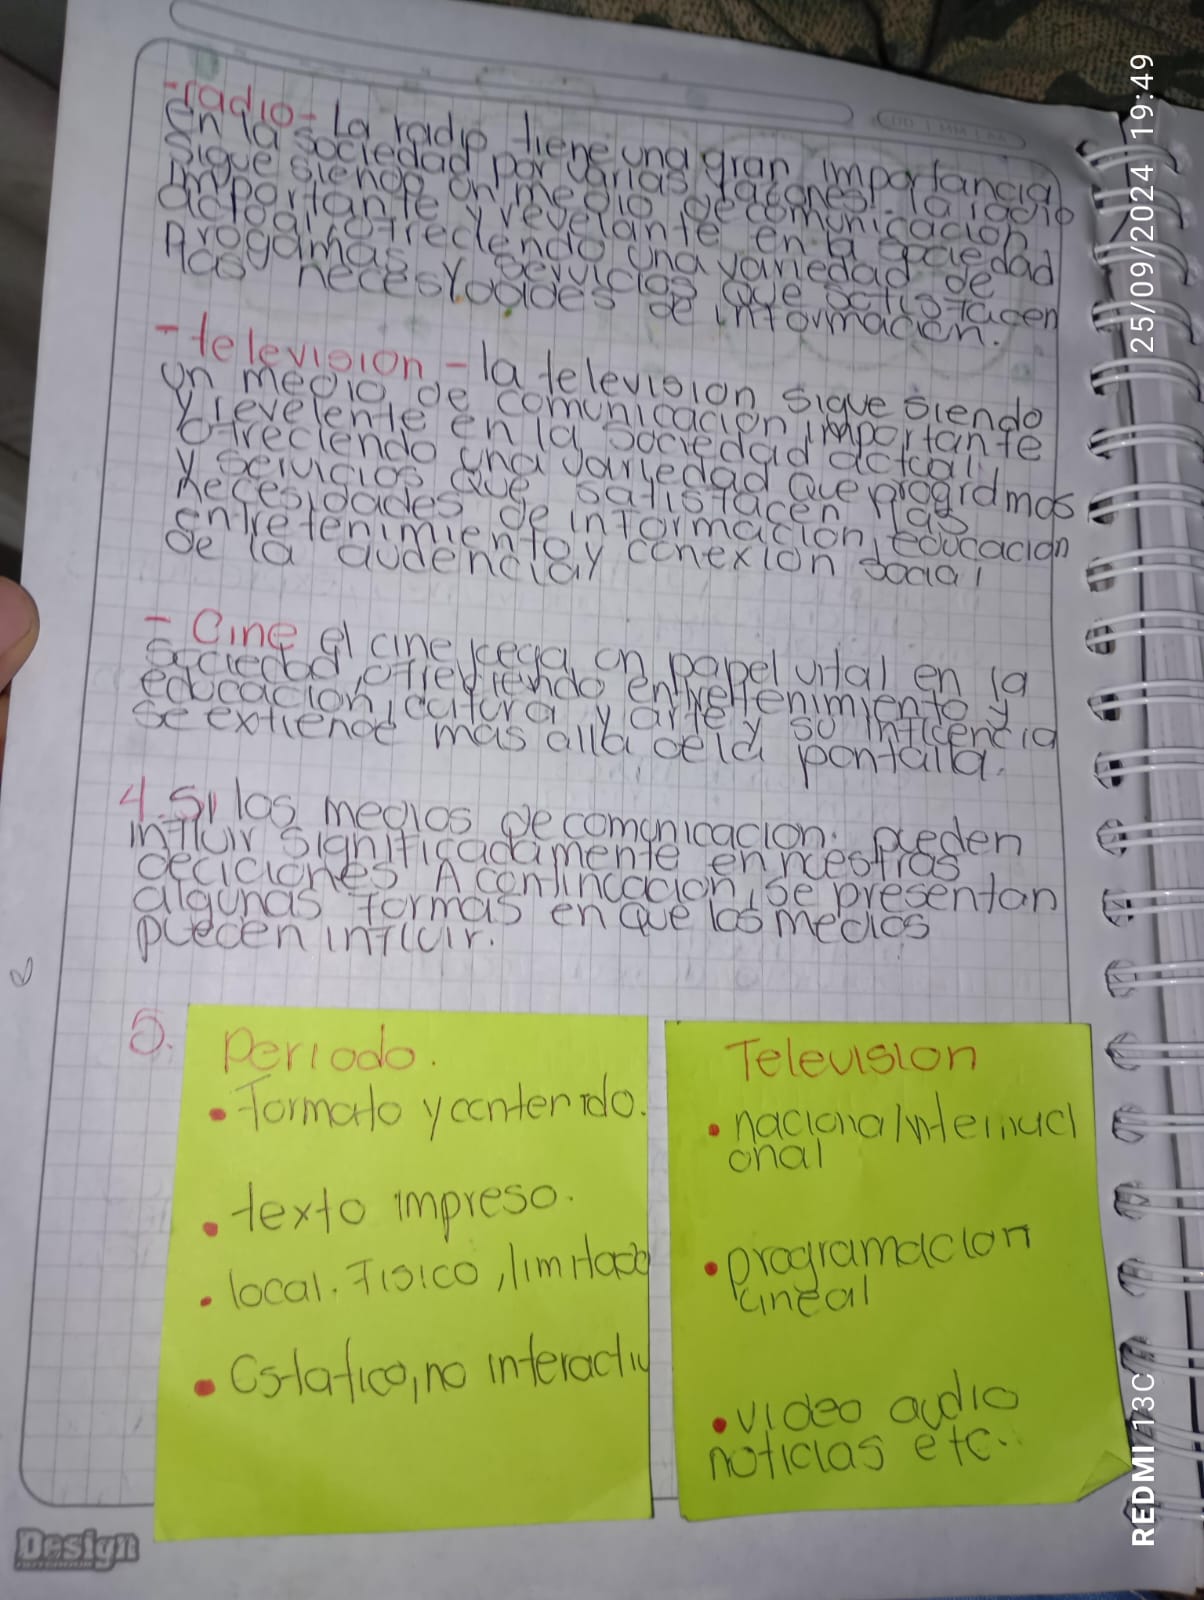 -radio- La radio tiene una gran importancia
en la sociedad por varias razones. la radio
sigue siendo un medio de comunicacion
importante y revelante en la sociedad
actual ofreciendo una variedad de
progamas y servicios que satisfacen
las necesydades de informacion.
- television - la television sigue siendo
un medio de comunicacion importante
y revelente en la sociedad actual,
ofreciendo una variedad que programas
y servicios que satisfacen las
necesidades de informacion, educacion
entretenimiento y conexion social
de la audencia
- Cine el cine juega un papel vital en la
sociedad, ofreciendo entretenimiento y
educacion, cultura y arte y su influencia
se extiende mas alla de la pantalla.
4. Si los medios de comunicacion. pueden
influir significadamente en nuestras
deciciones A continuacion, se presentan
algunas formas en que los medios
pueden influir.
5.
Periodo.
• Formato y contenido.
• texto impreso.
• local. Fisico, limitado
• Estatico, no interactiv
Television
• nacional internaci
onal
• programacion
lineal
• video audio
noticias etc..
Design
REDMI 13C 25/09/2024 19:49